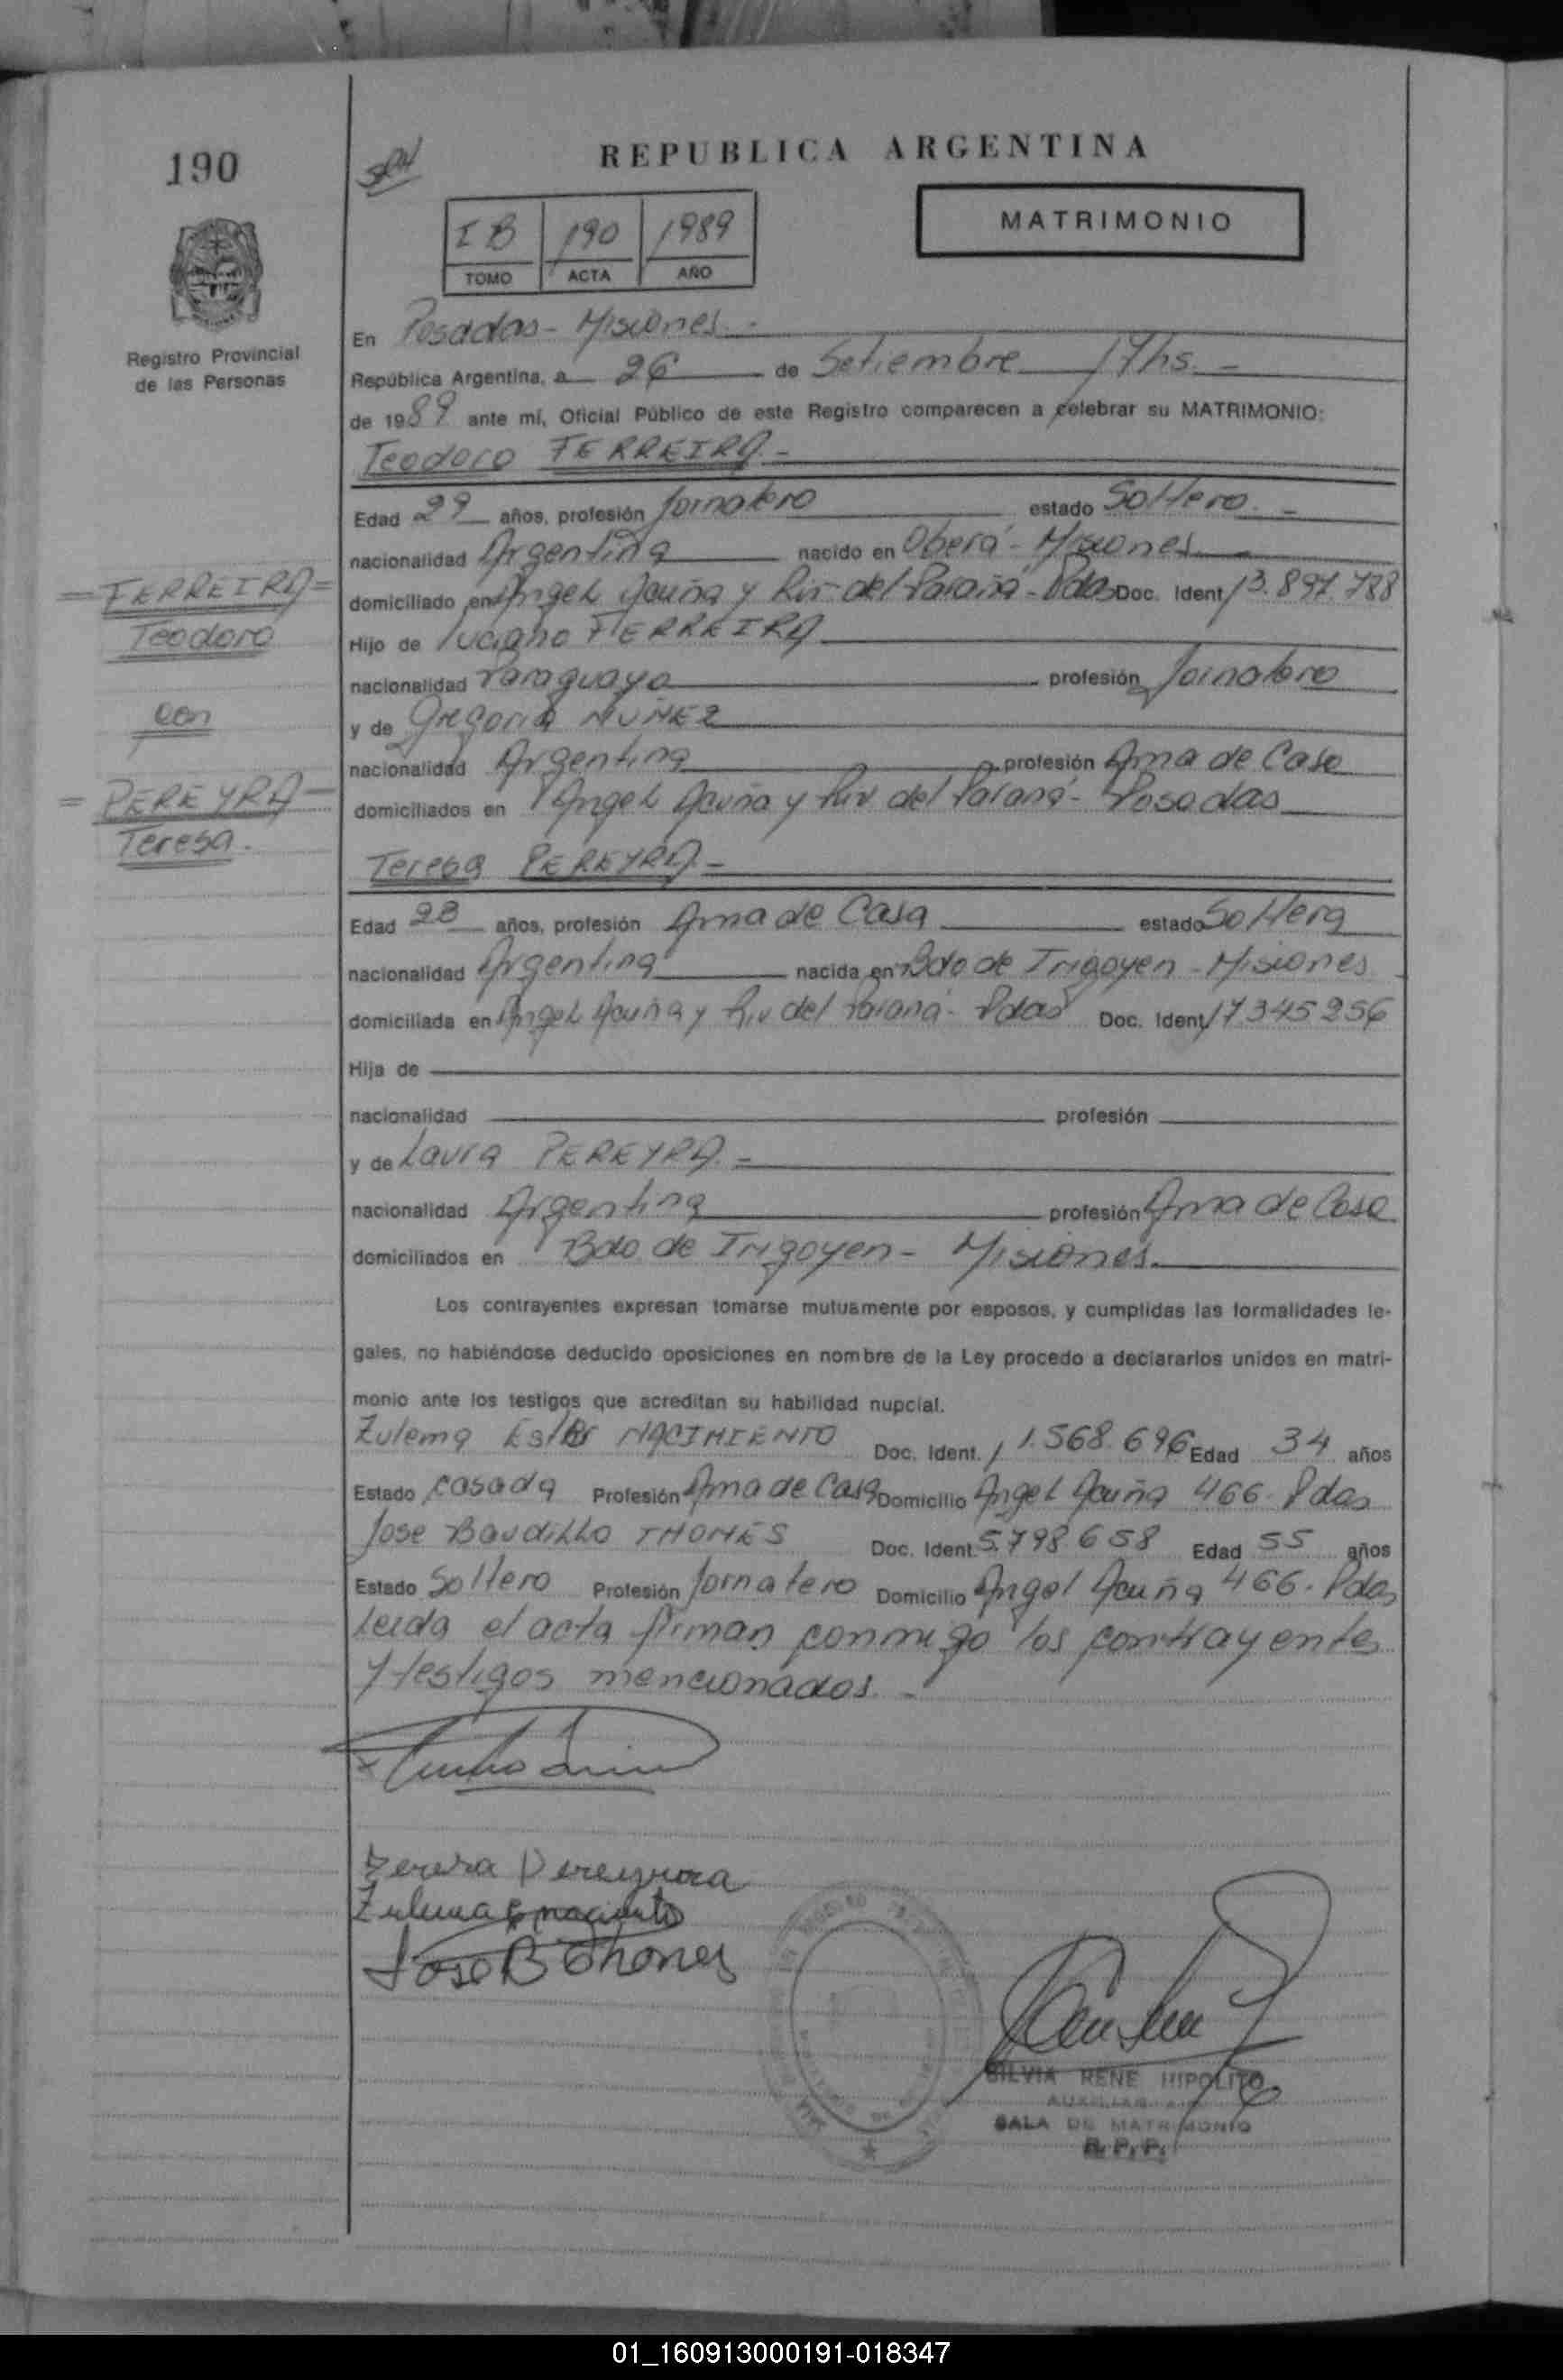 190
REPUBLICA ARGENTINA
MATRIMONIO
I B 190 1989
TOMO ACTA AÑO
Registro Provincial
de las Personas
En Posadas - Misiones -
República Argentina, a 26 de Setiembre 17hs. -
de 1989 ante mí, Oficial Público de este Registro comparecen a celebrar su MATRIMONIO:
Teodoro FERREIRA. -
Edad 29 años, profesión Jornalero estado Soltero. -
nacionalidad Argentina nacido en Oberá - Misiones
domiciliado en Angel Acuña y Riv del Paraná - Pdas Doc. Ident 13.897.788
Hijo de Luciano FERREIRA
nacionalidad Paraguaya profesión Jornalero
y de Gregoria NUÑEZ
nacionalidad Argentina profesión Ama de Casa
domiciliados en Angel Acuña y Riv del Paraná - Posadas
= FERREIRA =
Teodoro
con
= PEREYRA =
Teresa.
Teresa PEREYRA. -
Edad 28 años, profesión Ama de Casa estado Soltera
nacionalidad Argentina nacida en Bdo de Irigoyen - Misiones
domiciliada en Angel Acuña y Riv del Paraná - Pdas Doc. Ident 17.345.256
Hija de
nacionalidad profesión
y de Laura PEREYRA. -
nacionalidad Argentina profesión Ama de Casa
domiciliados en Bdo de Irigoyen - Misiones.
Los contrayentes expresan tomarse mutuamente por esposos, y cumplidas las formalidades le-
gales, no habiéndose deducido oposiciones en nombre de la Ley procedo a declararlos unidos en matri-
monio ante los testigos que acreditan su habilidad nupcial.
Zulema Ester NACIMIENTO Doc. Ident. 11.568.696 Edad 34 años
Estado casada Profesión Ama de Casa Domicilio Angel Acuña 466. Pdas
Jose Baudillo THOMES Doc. Ident. 5.798.658 Edad 55 años
Estado Soltero Profesión Jornalero Domicilio Angel Acuña 466. Pdas
Leida el acta firman conmigo los contrayentes
y testigos mencionados. -
Teresa Pereyra
Zulema E nacimiento
Jose B Thones
SILVIA RENE HIPOLITO
AUXILIAR
SALA DE MATRIMONIO
R. P. P.
01_160913000191-018347